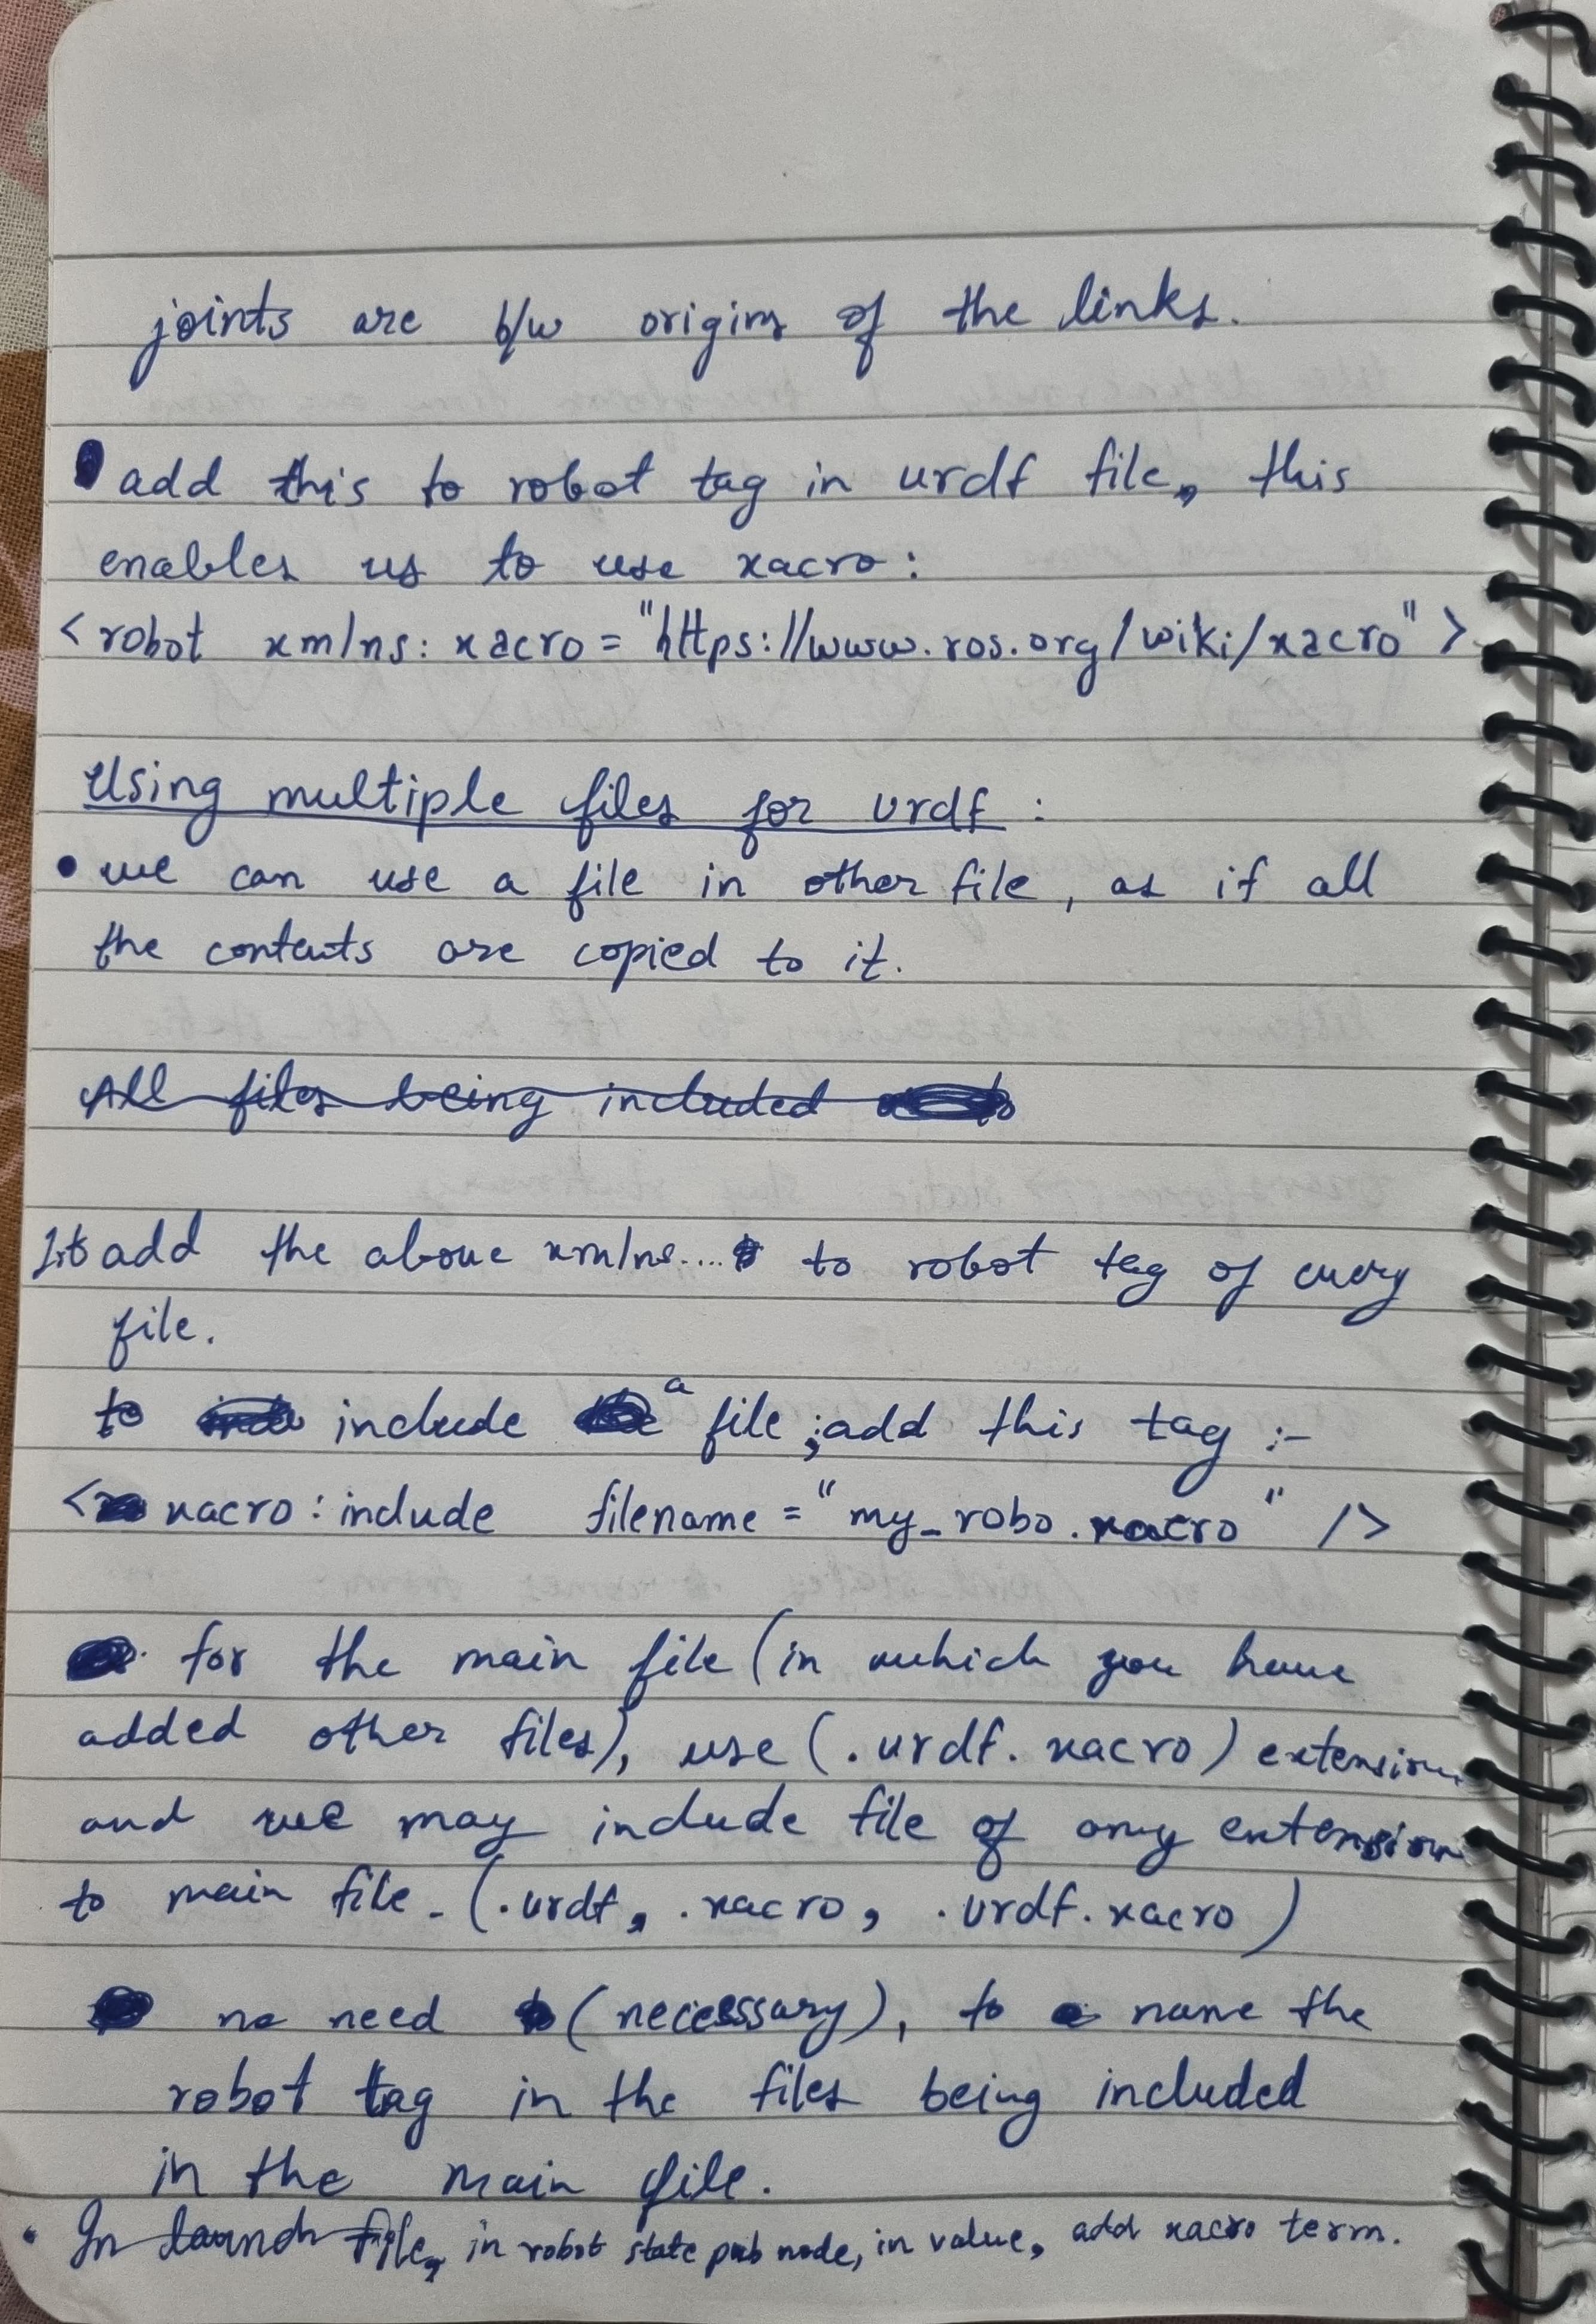 joints are b/w origins of the links.
add this to robot tag in urdf file, this
enables us to use xacro:
<robot xmlns:xacro="https://www.ros.org/wiki/xacro">
Using multiple files for urdf :
• we can use a file in other file, as if all
the contents are copied to it.
All files being included
add the above xmlns.... to robot tag of every
file.
to include a file ;add this tag :-
< xacro:include filename="my_robo.xacro" />
for the main file (in which you have
added other files), use (.urdf.xacro) extension
and we may include file of any extension
to main file. (.urdf, .xacro, .urdf.xacro)
no need (necesssary), to name the
robot tag in the files being included
in the main file.
• In launch file, in robot state pub node, in value, add xacro term.